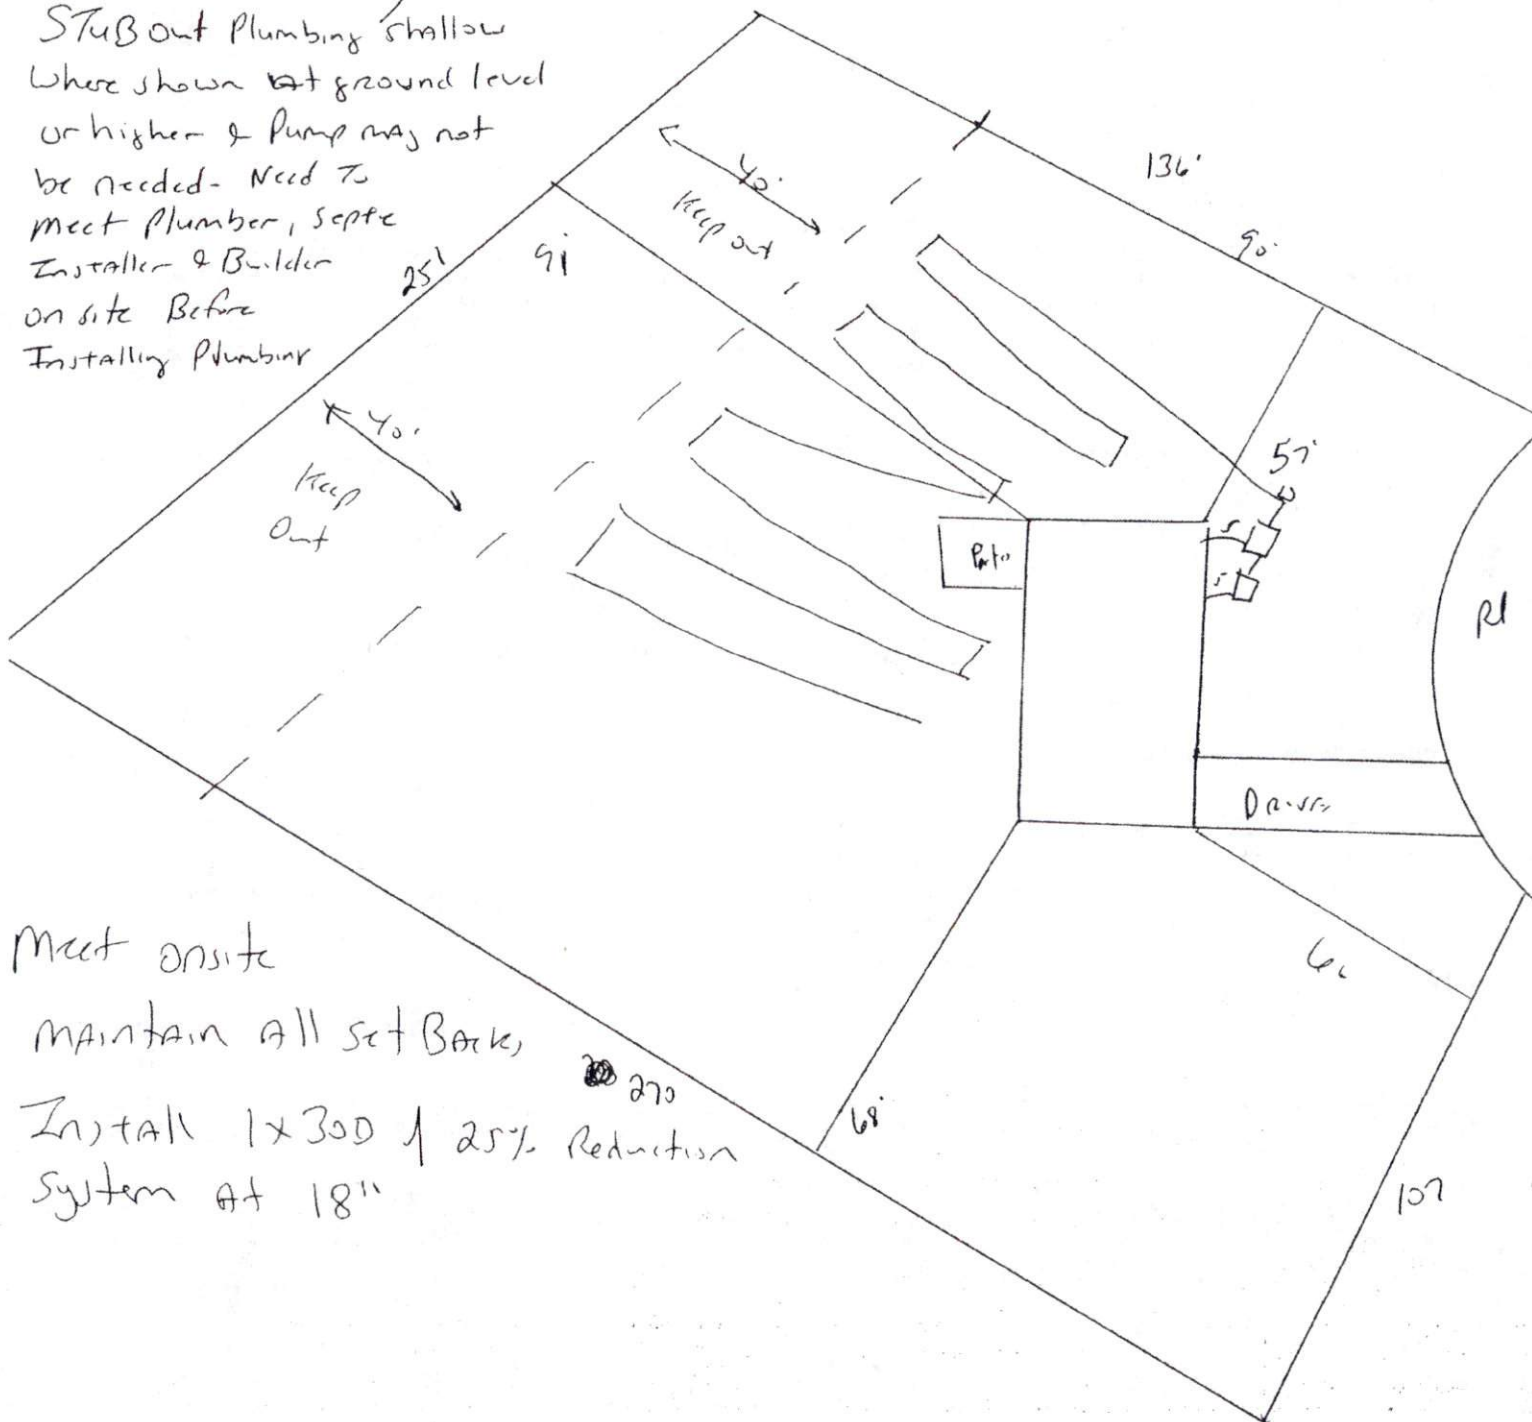 STUBout Plumbing shallow
Where shown At ground level
or higher & Pump may not
be needed- Need To
meet Plumber, septc
Installer & Builder
on site Before
Installing Plumbing
136'
40'
Keep out
90'
91
251
40'
Keep
Out
57'
5
5
Pato
Rd
Drive
Meet onsite
MAintAin All setBAcks
270
68'
107
Install 1x300 of 25% Reduction
System At 18"